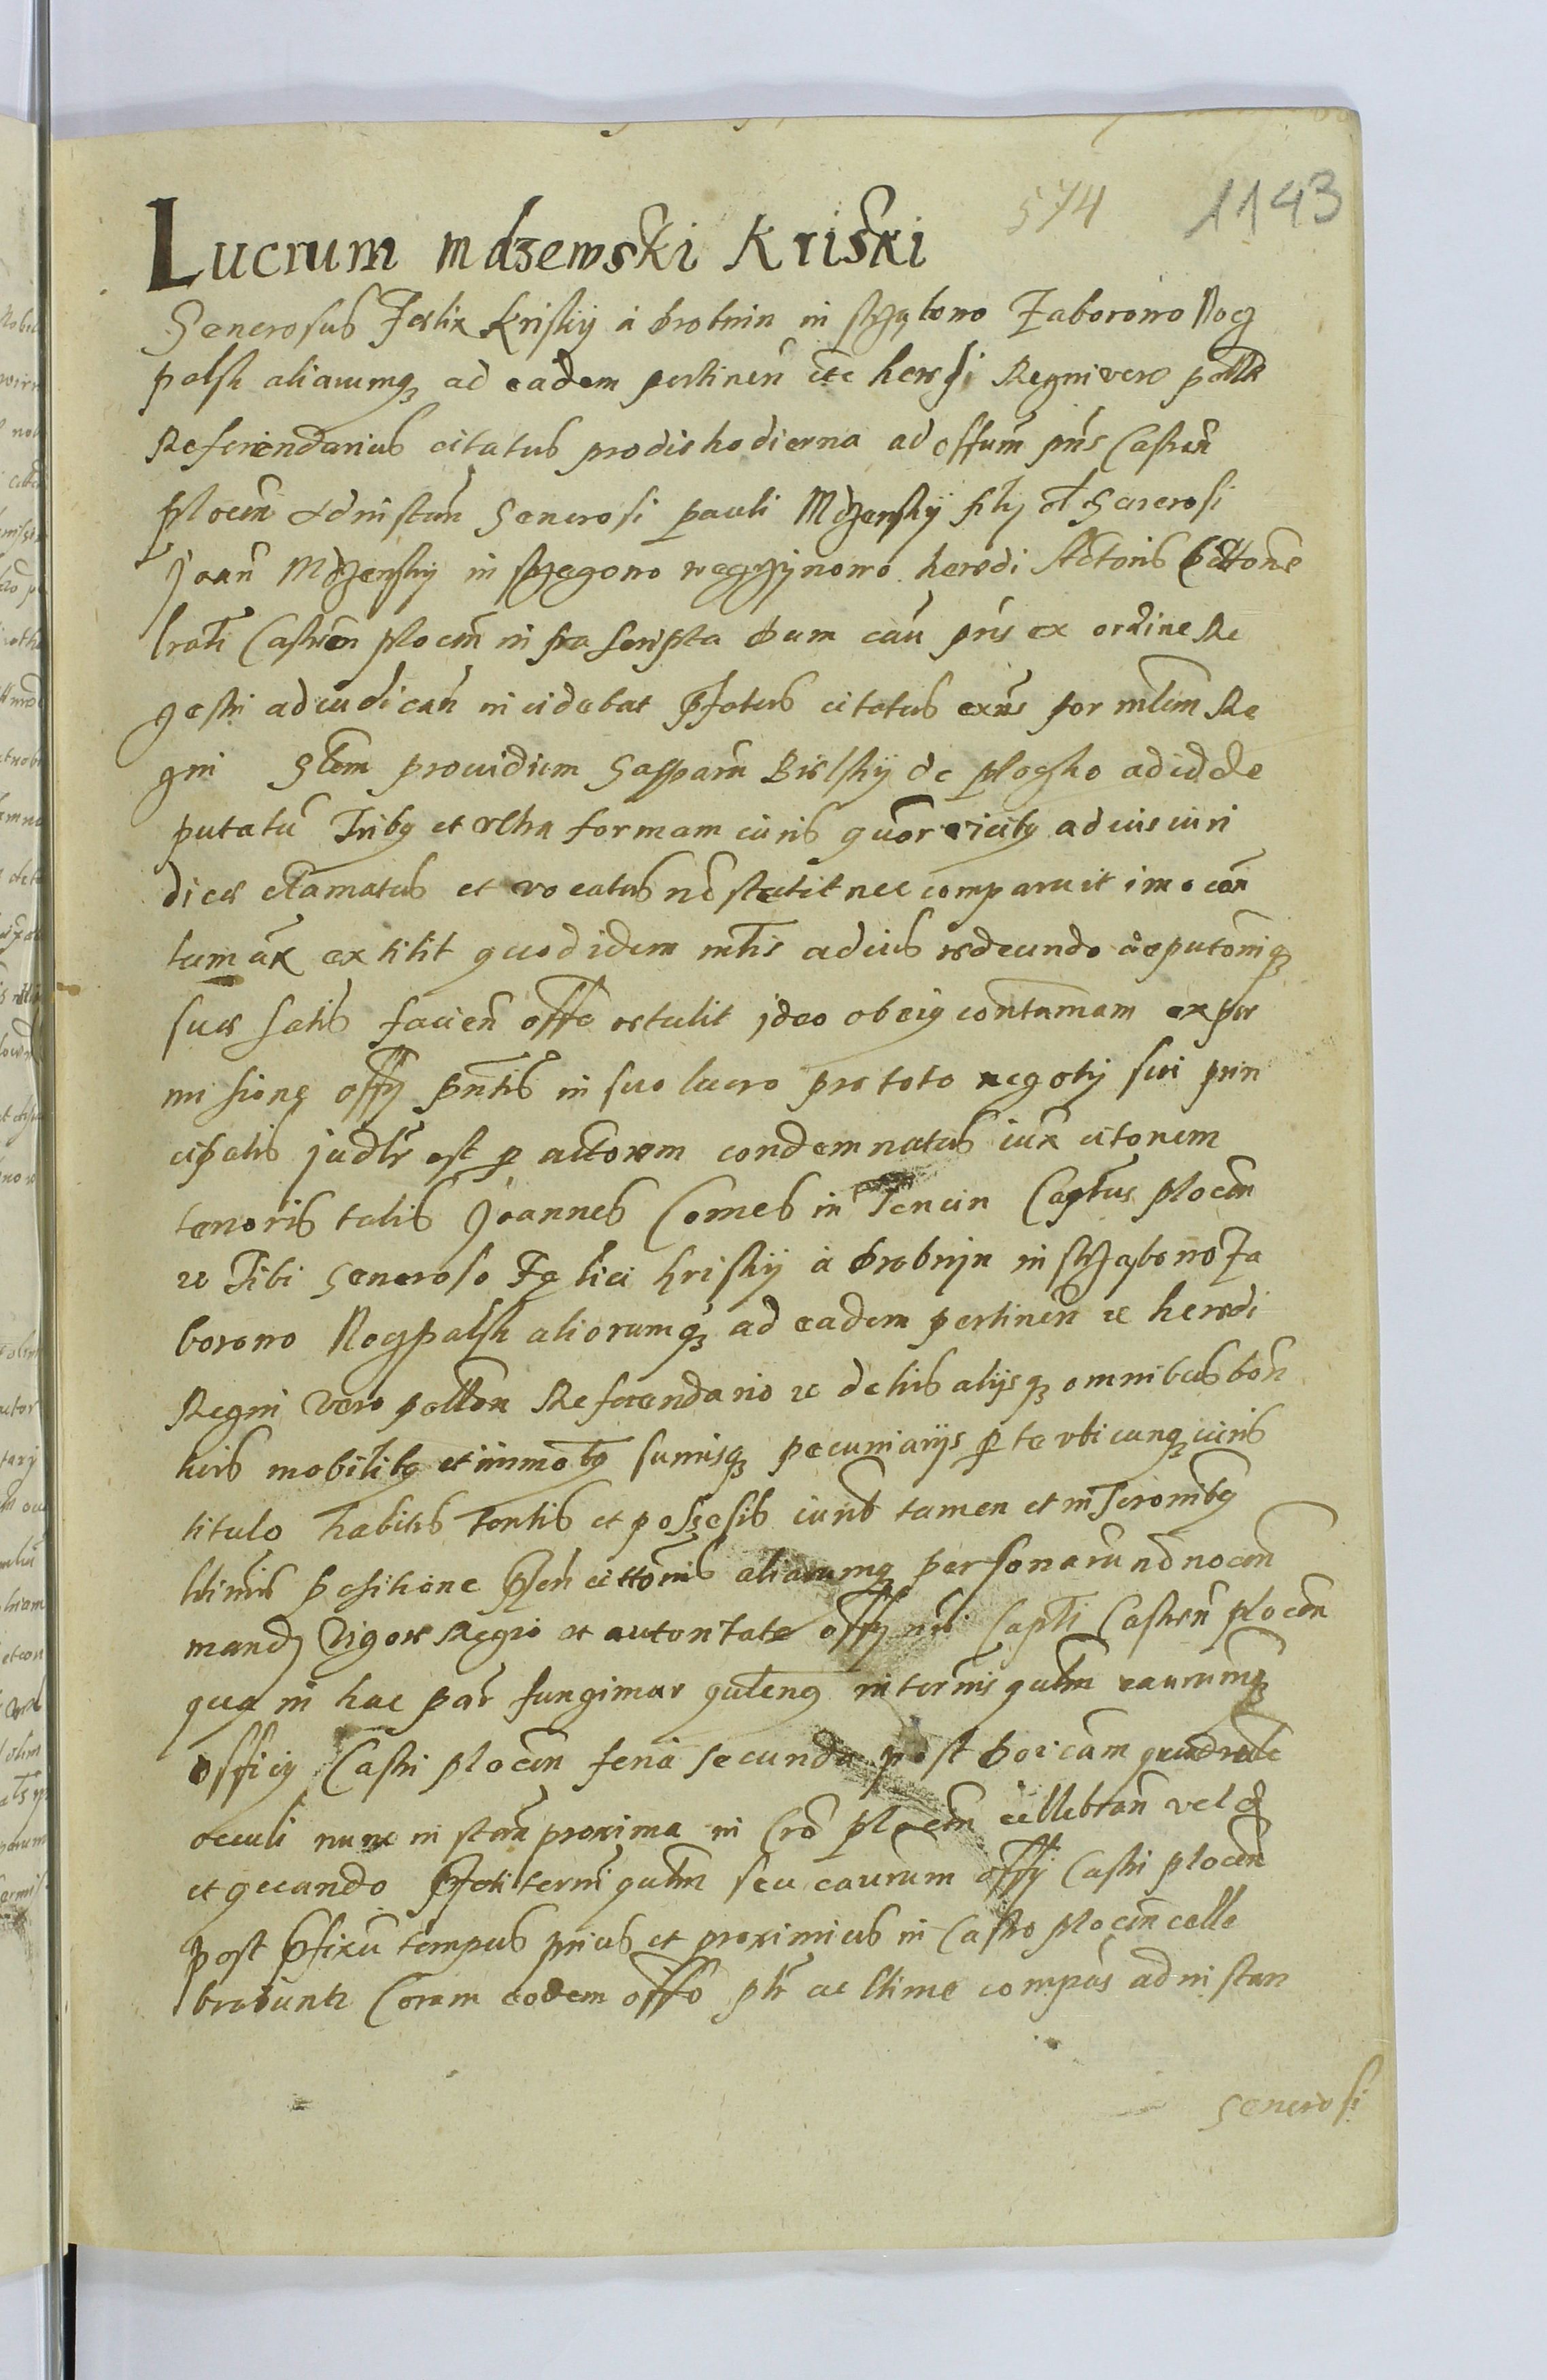 574 1143
Lucrum mdzewski Kriski
Generosus Foelix Kriskij a drobnin in sthgąbono Zaborono Rog
polsk aliarumq ad eadem pertinen etc heres Regni vero pollae
Referendarius citatus prodie hodierna ad offum pns Castren
plocen ad instan Generosi pauli Mdzenskij filij ol Generosi
Joan Mdzenskij in heredi Actoris Citone
Castren plocen infrascripta dum cau pns ex ordine Re
gestri adiudican incidebat pfatus citatus exns per mlem Re
gni Slem prouidum Gasparu Bielskij de plogsko ad id de
putatu Tribq et vltra formam iuris quor vicibq ad ius iuri
dice clamatus et vocatus no stetit nec comparuit imo con
tumax extitit quod idem mlis ad ius redeundo deputoniq
sue satis facien offo retulit ideo ob eiq contumam ex per
misione offij pntis in suo lucro pro toto negotij sui prin
cipalis judlr est p actorem condemnatus iux citonem
tenoris talis Joannes Comes in Tencin Captus plocen
rc Tibi Generoso Foelici kriskij a drobnijn in sthgąbono Za
borono Rogpolsk aliorumq ad eadem pertinen rc heredi
Regni vero pollon Referendario rc de his alijsq omnibus bon
tuis mobilibq et immobq sumisq pecuniarijs p te vbicunq iuris
titulo habitis tentis et possesis iuris tamen et
positione pnen cittonis aliarumq personaru no nocen
mandq Vigore Regio et autoritate offij nri Capti Castren plocen
qua in hac par fungimur qutenq in termis qutm caurumq
officij Castri plocen feria secunda post doicam quadrale
occuli nunc instan proxima in Cro plocen cellebran vel q
et quando pfati termi qutm seu caurum offij Castri plocen
post pfixu tempus prius et proximius in Castro plocen celle
brabunt Coram eodem offo plr ac ltime compas ad instan
Generosi